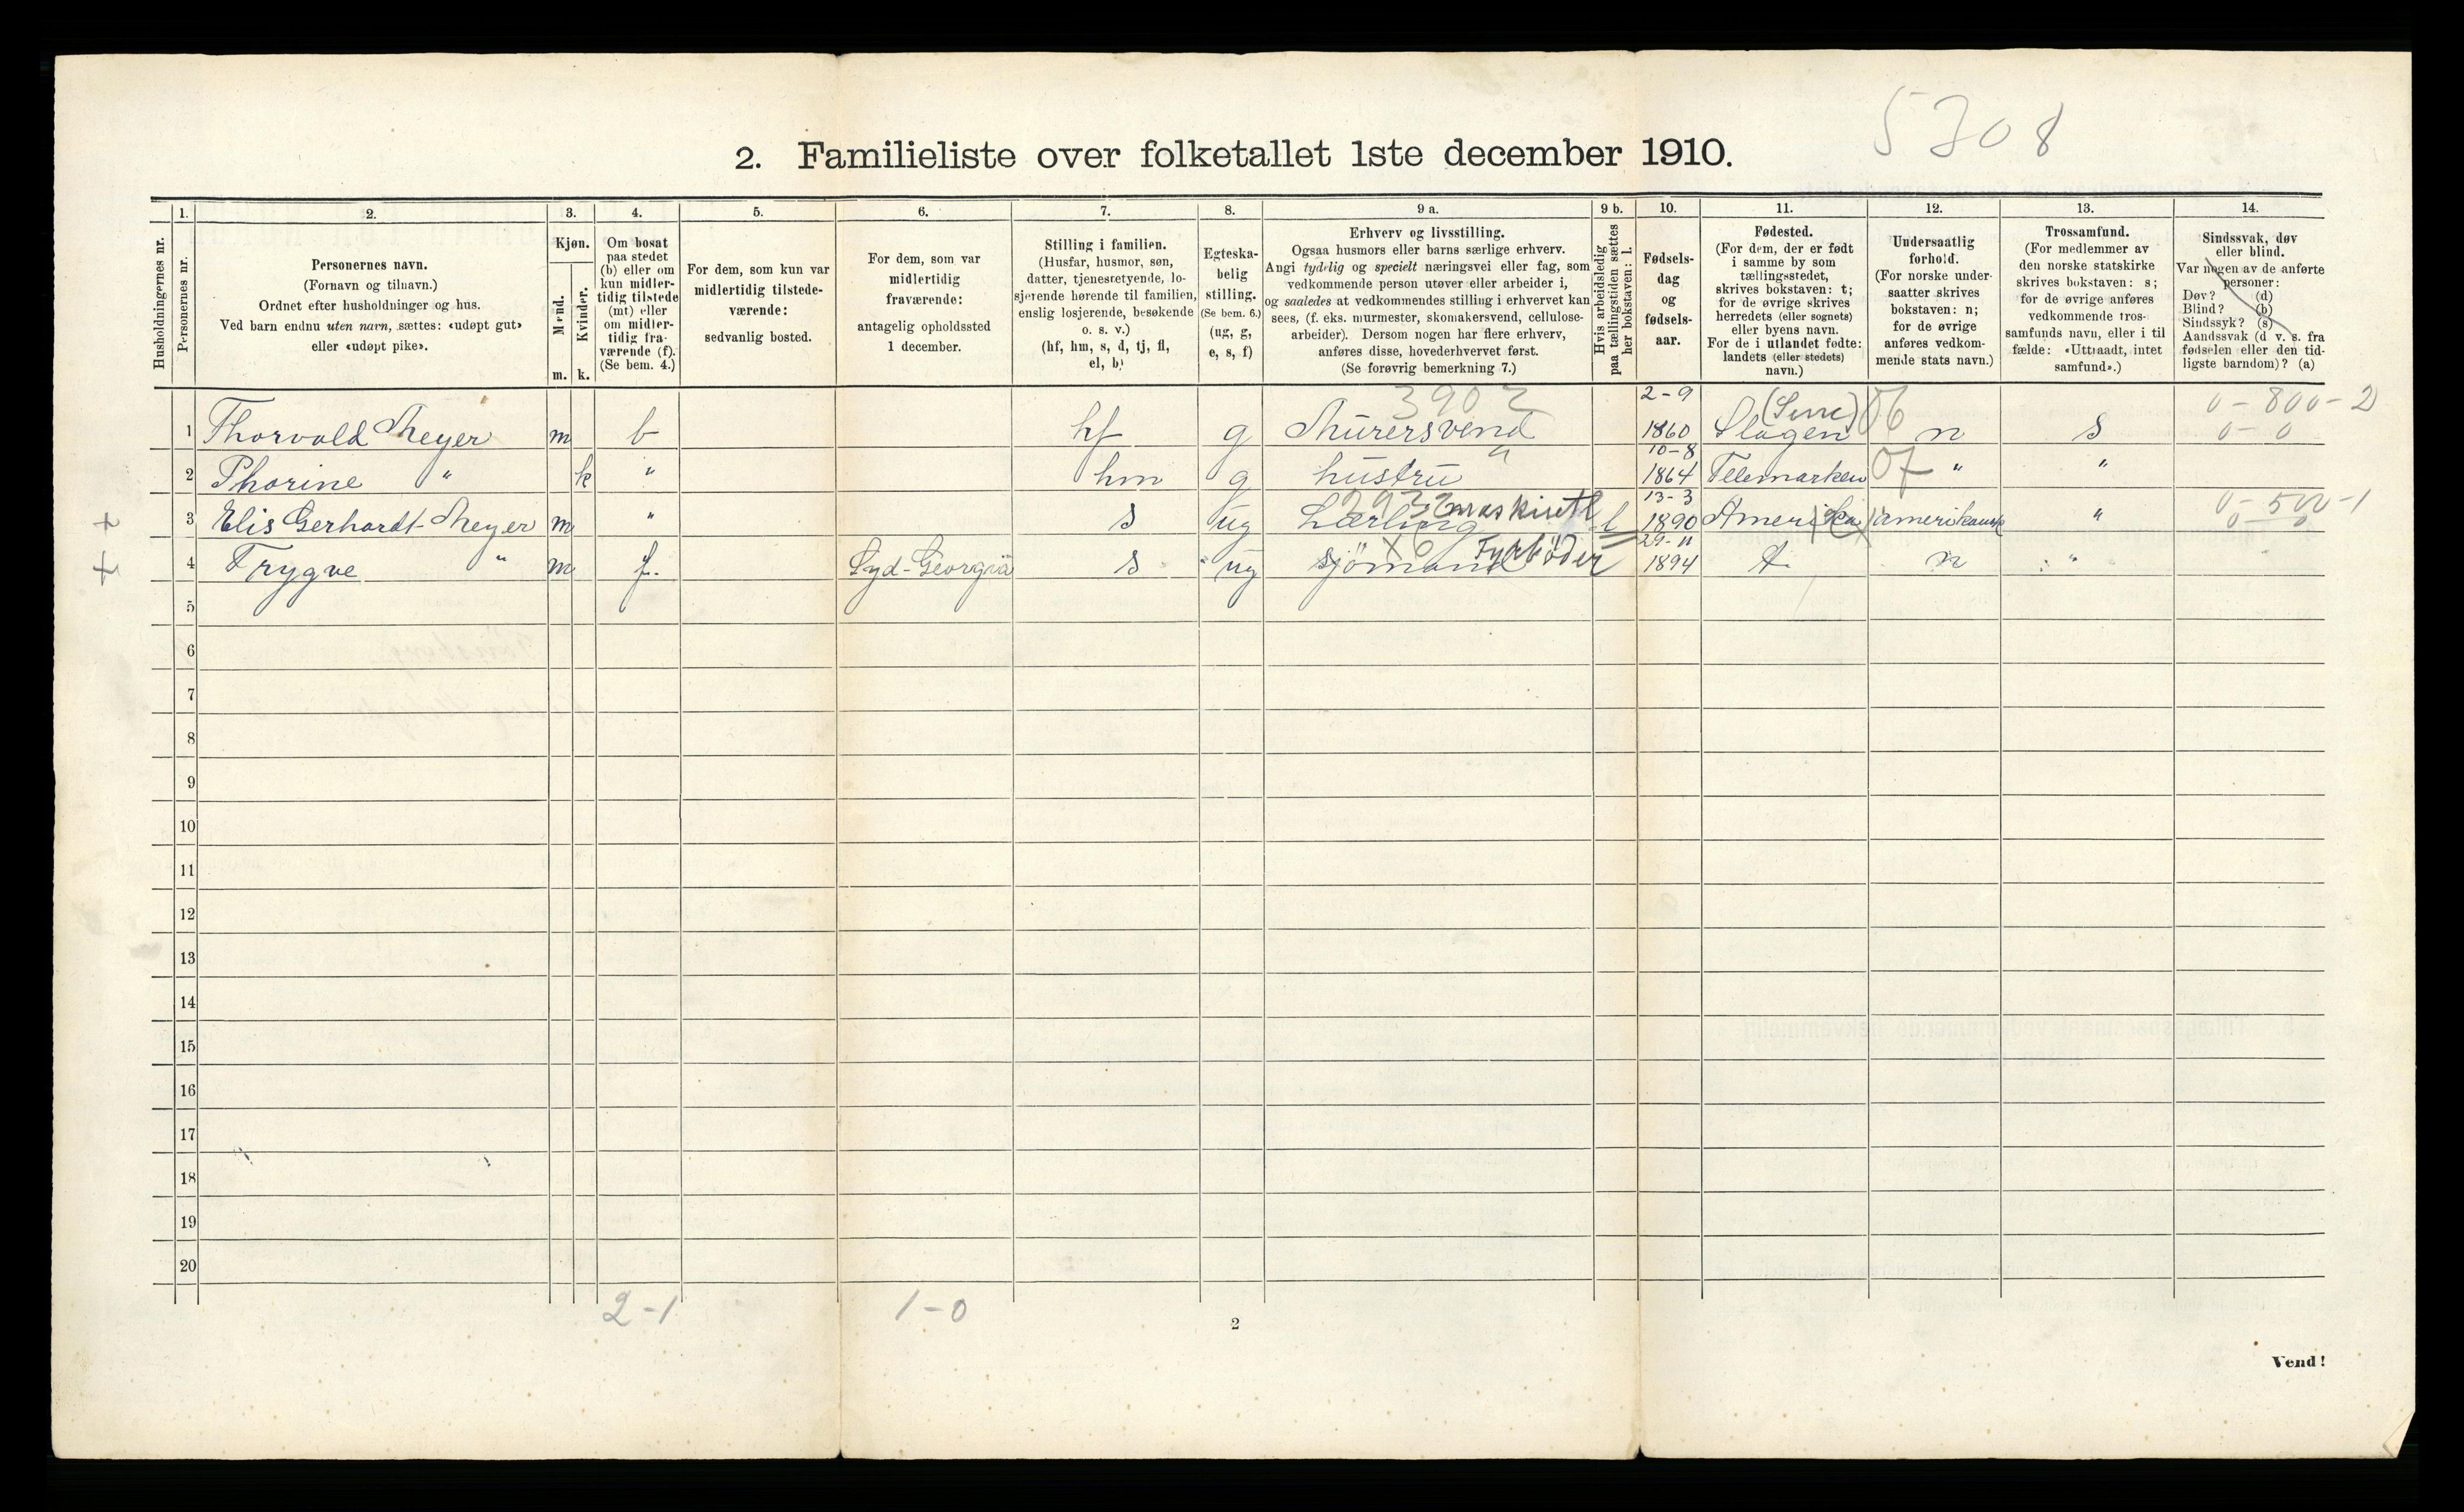 5708
2. Familieliste over folketallet 1ste december 1910.
Husholdningernes nr.
1.
Personernes nr.
2.
Personernes navn.
(Fornavn og tilnavn.)
Ordnet efter husholdninger og hus.
Ved barn endnu uten navn, sættes: «udøpt gut»
eller «udøpt pike».
3.
Kjøn.
Mænd.
Kvinder.
m. k.
4.
Om bosat
paa stedet
(b) eller om
kun midler-
tidig tilstede
(mt) eller
om midler-
tidig fra-
værende (f).
(Se bem. 4.)
5.
For dem, som kun var
midlertidig tilstede-
værende:
sedvanlig bosted.
6.
For dem, som var
midlertidig
fraværende:
antagelig opholdssted
1 december.
7.
Stilling i familien.
(Husfar, husmor, søn,
datter, tjenestetyende, lo-
sjerende hørende til familien,
enslig losjerende, besøkende
o. s. v.)
(hf, hm, s, d, tj, fl,
el, b)
8.
Egteska-
belig
stilling.
(Se bem. 6.)
(ug, g,
e, s, f)
9 a.
Erhverv og livsstilling.
Ogsaa husmors eller barns særlige erhverv.
Angi tydelig og specielt næringsvei eller fag, som
vedkommende person utøver eller arbeider i,
og saaledes at vedkommendes stilling i erhvervet kan
sees, (f. eks. murmester, skomakersvend, cellulose-
arbeider). Dersom nogen har flere erhverv,
anføres disse, hovederhvervet først.
(Se forøvrig bemerkning 7.)
9 b.
Hvis arbeidsledig
paa tællingstiden sættes
her bokstaven: l.
10.
Fødsels-
dag
og
fødsels-
aar.
11.
Fødested.
(For dem, der er født
i samme by som
tællingsstedet,
skrives bokstaven: t;
for de øvrige skrives
herredets (eller sognets)
eller byens navn.
For de i utlandet fødte:
landets (eller stedets)
navn.)
12.
Undersaatlig
forhold.
(For norske under-
saatter skrives
bokstaven: n;
for de øvrige
anføres vedkom-
mende stats navn.)
13.
Trossamfund.
(For medlemmer av
den norske statskirke
skrives bokstaven: s;
for de øvrige anføres
vedkommende tros-
samfunds navn, eller i til
fælde: «Uttraadt, intet
samfund».)
14.
Sindssvak, døv
eller blind.
Var nogen av de anførte
personer:
Døv? (d)
Blind? (b)
Sindssyk? (s)
Aandssvak (d. v. s. fra
fødselen eller den tid-
ligste barndom)? (a)
3902 2-9 (Semc) 06 0-800-2
1 Thorvald Meyer m b hf g Murersvend 1860 Slagen n s 0-0
10-8
2 Thorine " k " hm g hustru " 1864 Telemarken 07 " "
2932 maskintl 13-3 0-500-1
3 Elis Gerhardt Meyer m " s ug Lærling l 1890 Amerika amerikansk " 0-0
x6 Fyrbøder 29-11
4 Trygve " m f. Syd-Georgia s ug sjömand 1894 t. n "
5
6
7
8
9
10
11
12
13
14
15
16
17
18
19
20
2-1 1-0
2
Vend!